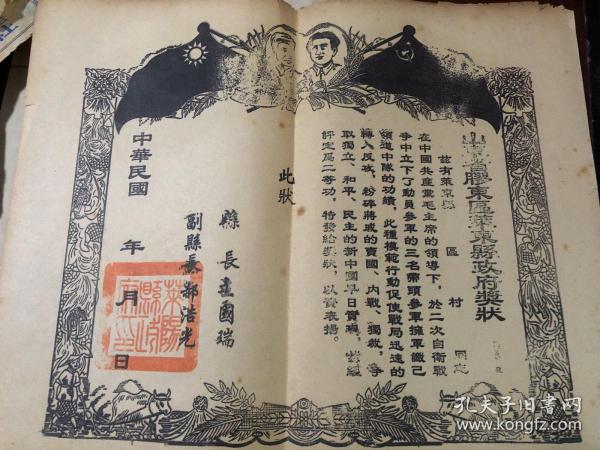 山東省膠東區萊東縣政府獎狀
茲有萊東縣 區 村 同志
在中國共產黨毛主席的領導下，於二次自衛戰
爭中立下了動員參軍的三名帶頭參軍擁軍識己
領導中隊的功績，此種模範行動促使戰局迅速的
轉入反攻，粉碎蔣戒的賣國、內戰、獨裁，爭
取獨立、和平、民主的新中國早日實現，
評定局二等功，特發給獎狀，以資表揚。
此狀
縣長 國瑞
副縣長 浩光
中華民國 年 月 日
孔夫子旧书网